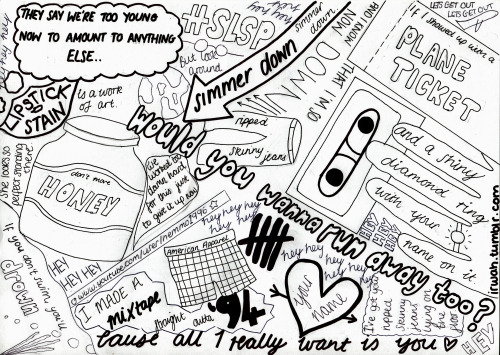 THEY SAY WE'RE TOO YOUNG
NOW TO AMOUNT TO ANYTHING
ELSE..
#SLSP
hey hey hey
But look
around
simmer down
simmer
down
NOW
AND KNOW
THAT I'M SO
DOWN
LETS GET OUT
LETS GET OUT
if I showed up with a
PLANE
TICKET
and a shiny
diamond ring
with your
name on it
LIPSTICK
STAIN
is a work
of art.
she looks so
perfect standing
there
don't move
HONEY
would you wanna run away too?
ripped
skinny
jeans
we
worked too
damn hard
for this just
to give it up now
hey hey hey
hey hey
HEY
HEY HEY
www.youtube.com/user/nemmo1996
American Apparel
I MADE A
mixtape
straight outta
'94
your
name
hey hey
hey hey
hey hey
HEY
HEY
HEY
I've got your
ripped
skinny
jeans
lying
on
the
floor
if you don't swim, you'll
drown
'cause all I really want is you